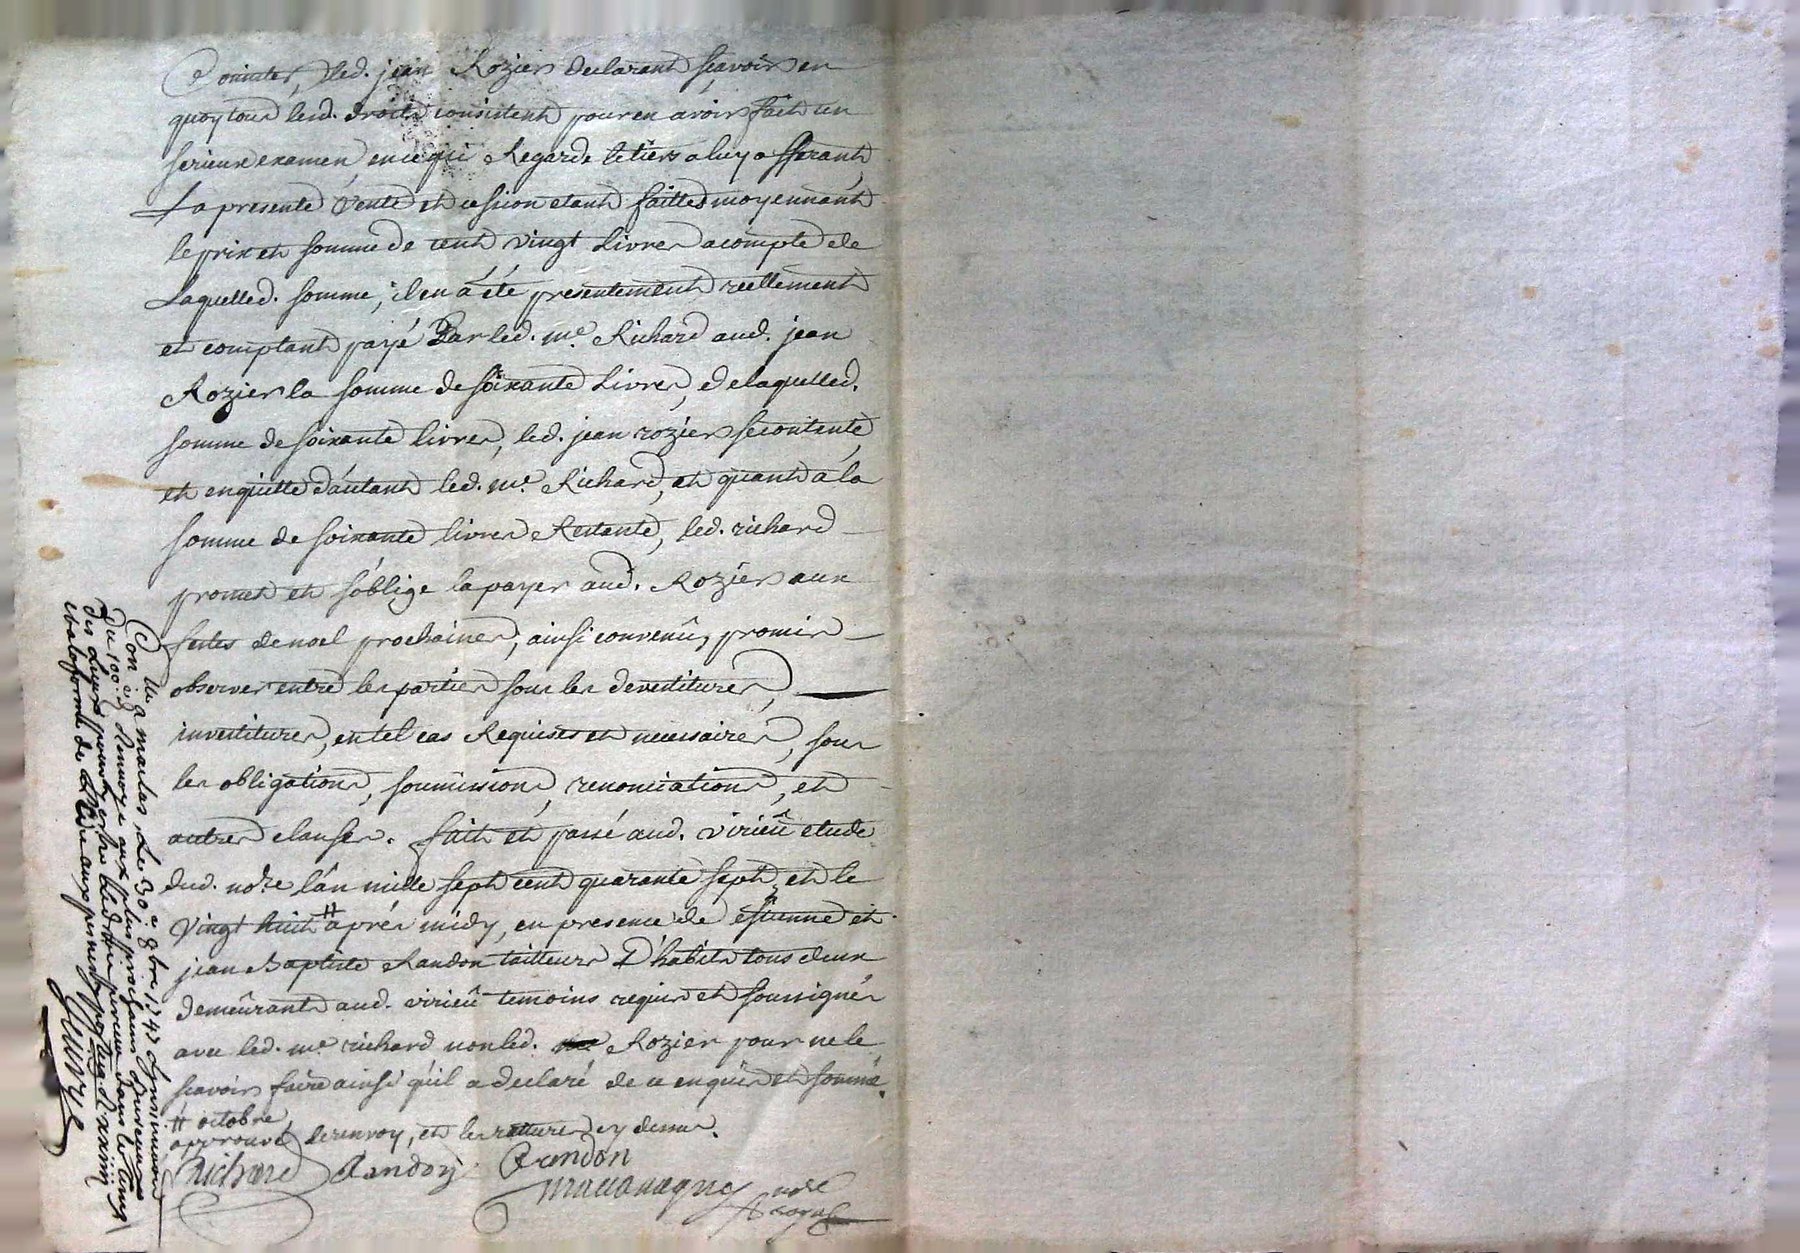 led. jean Rozier declarant scavoir en
quoy tous lesd. droits consistent pour en avoir fait un
serieux examen, en ce qui Regarde le tiers a luy afferant,
La presente vente et cession etant faitte moyennant
le prix et somme de cent vingt Livres acompte de
Laquelled. somme, il en á été presentement reellement
et comptant payé Par led. me. Richard aud. jean
Rozier la somme de soixante Livres, de laquelled.
somme de soixante livres, led. jean rozier se contente,
et en quitte d'autant led. me. Richard, et quant a la
somme de soixante livres Restante, led. richard
promet et s'oblige la payer aud. Rozier aux
festes de noel prochaines, ainsi convenû, promis
observer entre les parties sous les devestitures,
investitures, en tel cas Requises et necessaires, sous
les obligations, soumissions, renonciations, et
autres clauses. fait et passé aud. virieû etude
dud. nore l'an mille sept cent quarante sept, et le
Vingt huit # aprés midy, en presence de estienne et
jean Baptiste Randon tailleurs D'habits tous deux
demeûrants aud. virieû temoins requis et soussignés
avec led. me. richard non led. Rozier pour ne le
scavoir faire ainsi qu'il a declaré de ce enquis et sommé.
# octobre
approuvé le renvoy, et les ratures cy dessus.
Richard Randon Randon
nore
Royal
Conlé a malas Le 30e 8bre 1747
Du 100e Renvoye aux plus prochains Bureaux
des Lieux pour y estre dans le temps
et a la forme de aux peines